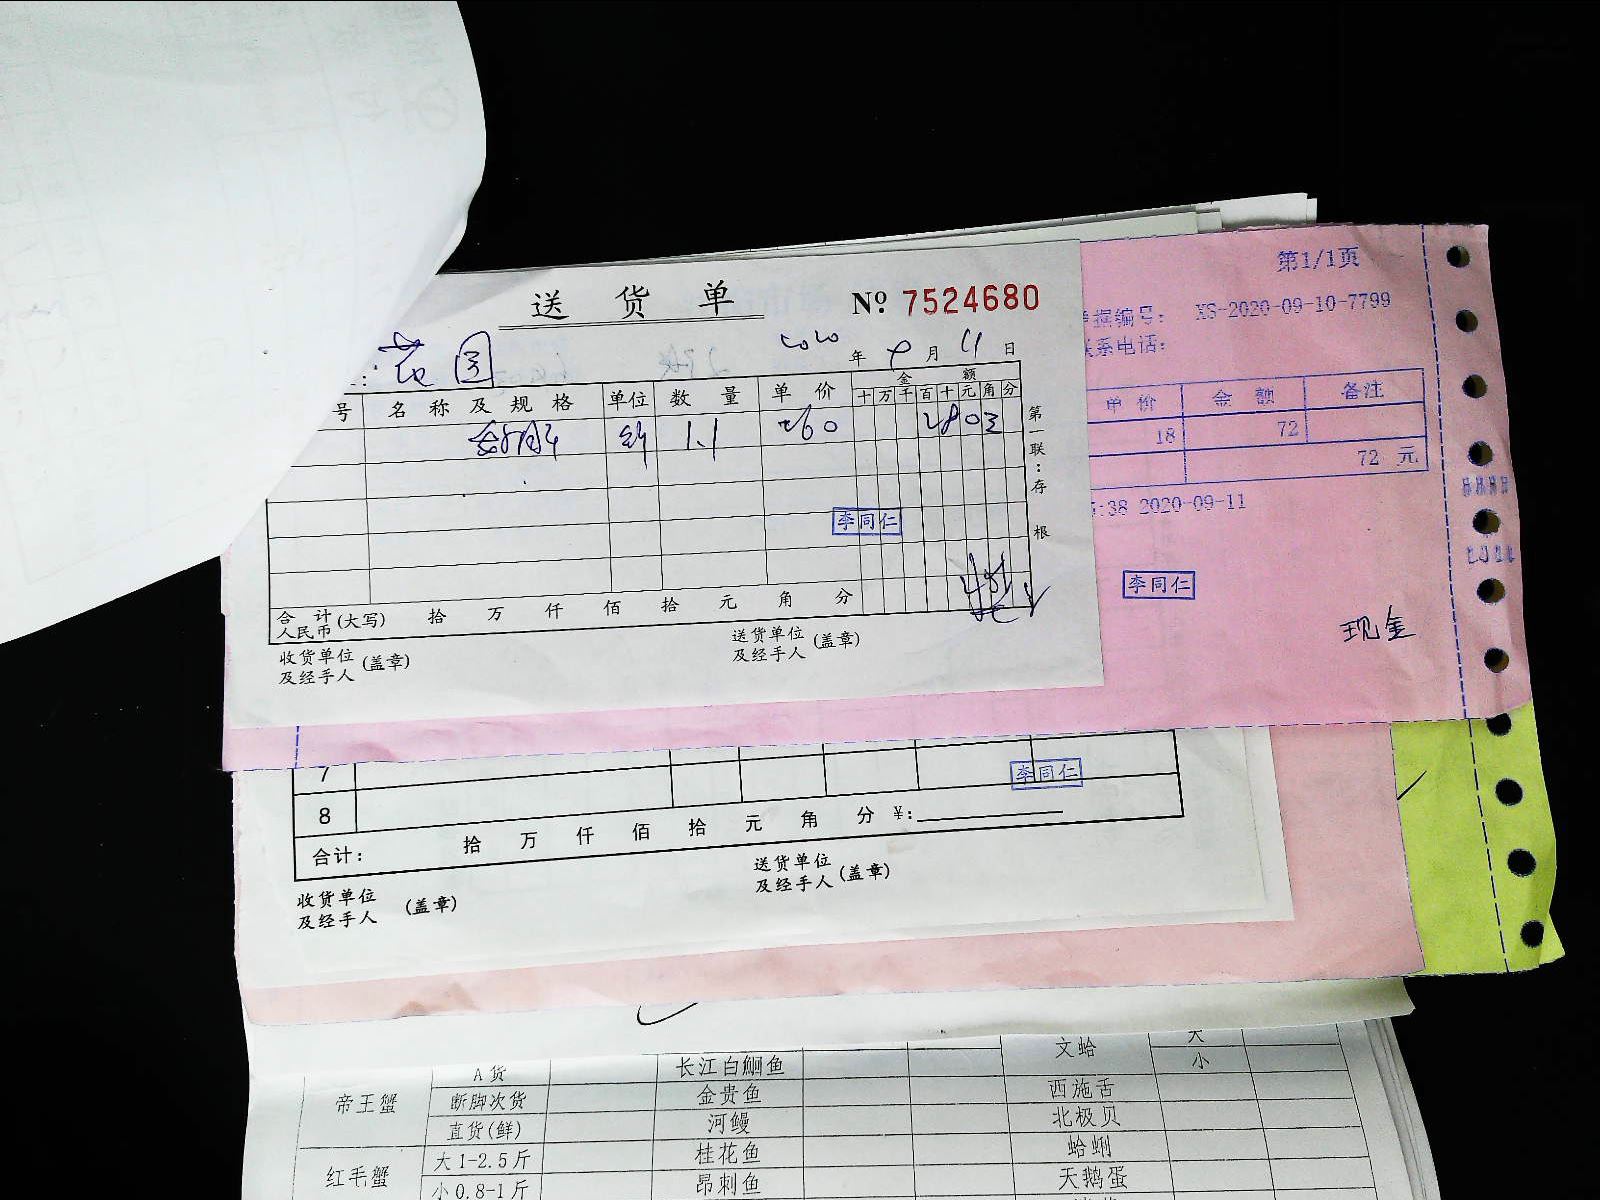 送货单 № 7524680
花园
2020年 9月 11日
号 名称及规格 单位 数量 单价 金额
十 万 千 百 十 元 角 分
斤 1.1 260
第一联:存根
李同仁
合计 人民币 (大写) 拾 万 仟 佰 拾 元 角 分
收货单位 及经手人 (盖章) 送货单位 及经手人 (盖章)
第1/1页
单据编号: XS-2020-09-10-7799
联系电话:
单价 金额 备注
18 72
72 元
:38 2020-09-11
李同仁
现金
7
李同仁
8
合计: 拾 万 仟 佰 拾 元 角 分 ¥:
收货单位 及经手人 (盖章) 送货单位 及经手人 (盖章)
帝王蟹 A货 长江白鮰鱼 文蛤 大
断脚次货 金贵鱼 小
直货(鲜) 河鳗 西施舌
红毛蟹 大1-2.5斤 桂花鱼 北极贝
小0.8-1斤 昂刺鱼 蛤蜊
天鹅蛋